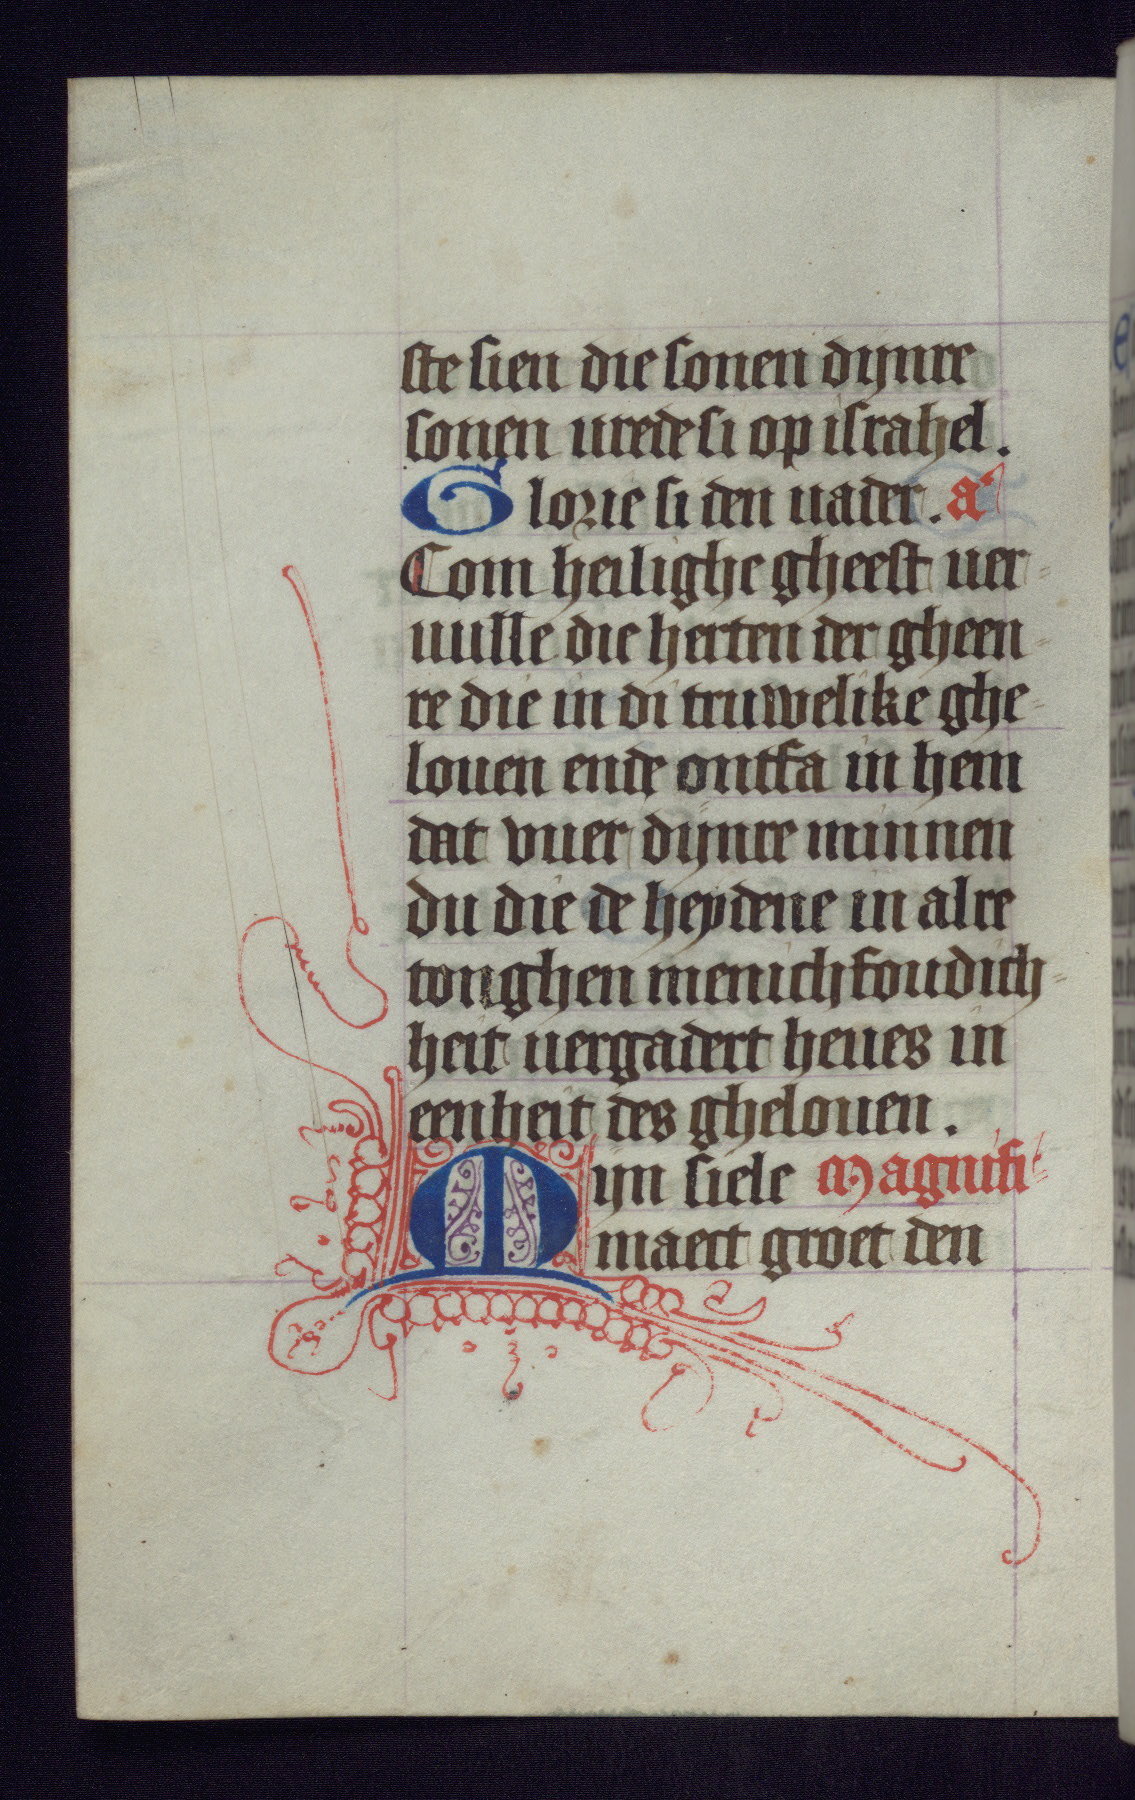 ste sien die sonen dijnre
sonen urede si op israhel.
Glorie si den uader. a'
Com heilighe gheest uer-
uulle die herten der gheen-
re die in di truwelike ghe-
louen ende ontfa in hem
dat vuer dijnre minnen
du die de heydene in alre
tonghen menichfoudich-
heit uergadert heues in
eenheit des ghelouen.
Mijn siele Magnifi-
maect groet den